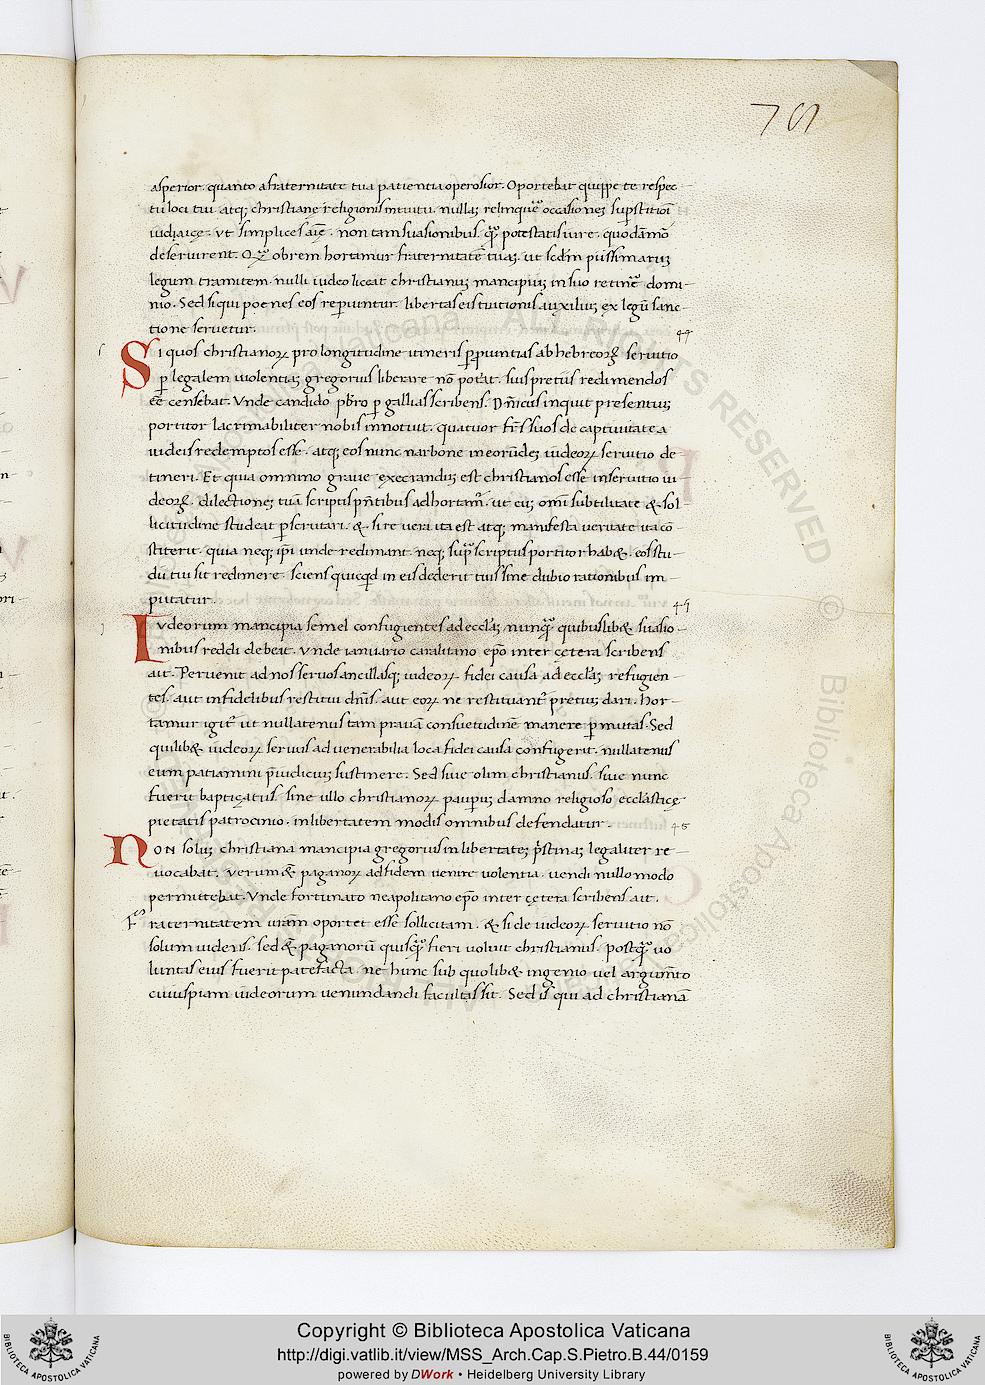 79
asperior. quanto afraternitate tua patientia operosior. Oportebat quippe te respec
tu loci tui. atq; christiane religionis intuitu. nullā relinquere occasionē superstitiōi
iudaicę. ut simplices aīę. non tam suasionibus. quā potestatis iure. quodāmō
deseruirent. Quāobrem hortamur fraternitatē tuā. ut scdm piissimarū
legum tramitem. nulli iudeo liceat christianū mancipiū in suo retinere domi-
nio. Sed si qui poenes eos reperiuntur. libertas eis tuitionis auxiliū ex legū sanc-
tione seruetur.
44
Si quos christianorꝝ pro longitudine itineris pprouintias ab hebreorꝝ seruitio
ꝑ legalem uiolentiā gregorius liberare nō poterat. suis pretiis redimendos
eē censebat. Vnde candido pbro ꝑ gallias scribens. Dñicus inquit presentiū
portitor lacrimabiliter nobis innotuit. quatuor frīs suos de captiuitate a
iudeis redemptos esse. atq; eos nunc narbone in eorūdē iudeorꝝ seruitio de-
tineri. Et quia omnino graue execrandū est christianos esse in seruitio iu
deorꝝ. dilectionē tuā scriptis pñtibus adhortamur. ut cū omī subtilitate & sol-
licitudine studeat ꝑscrutari. & si re uera ita est atq; manifesta ueritate ita cō-
stiterit. quia neq; ipī unde redimant. neq; suprascriptus portitor hab&. eos stu-
dii tui sit redimere. sciens quicqd in eis dederis tuis sine dubio rationibus im-
putatur.
45
Iudeorum mancipia semel confugientes ad ecclām nunquā quibuslib& suasio-
nibus reddi debeat. Vnde ianuario caralitano epō inter cętera scribens
ait. Peruenit ad nos seruos ancillasq; iudeorꝝ. fidei causa ad ecclām refugien-
tes. aut infidelibus restitui dnīs. aut eorꝝ ne restituantur pretiū dari. Hor-
tamur igitur ut nullatenus tam prauā consuetudinē manere ꝑmittas. Sed
quilib& iudeorꝝ seruus ad uenerabilia loca fidei causa confugerit. nullatenus
eum patiamini pręiudiciū sustinere. Sed siue olim christianus. siue nunc
fuerit baptiçatus. sine ullo christianorꝝ pauperū damno religioso ecclesiasticę
pietatis patrocinio. in libertatem modis omnibus defendatur.
46
Non solū christiana mancipia gregorius in libertatē pristinā legaliter re-
uocabat. uerum & paganorꝝ ad fidem uenire uolentia. uendi nullo modo
permittebat. Vnde fortunato neapolitano epō inter cętera scribens ait.
Fraternitatem uram oportet esse sollicitam. & si de iudeorꝝ seruitio nō
solum iudeus. sed & paganorū quisquā fieri uoluit christianus. postquā uo
luntas eius fuerit patefacta. ne hunc sub quolib& ingenio uel argumto
cuiuspiam iudeorum uenundandi facultas sit. Sed is qui ad christianā
Copyright © Biblioteca Apostolica Vaticana
http://digi.vatlib.it/view/MSS_Arch.Cap.S.Pietro.B.44/0159
powered by DWork • Heidelberg University Library